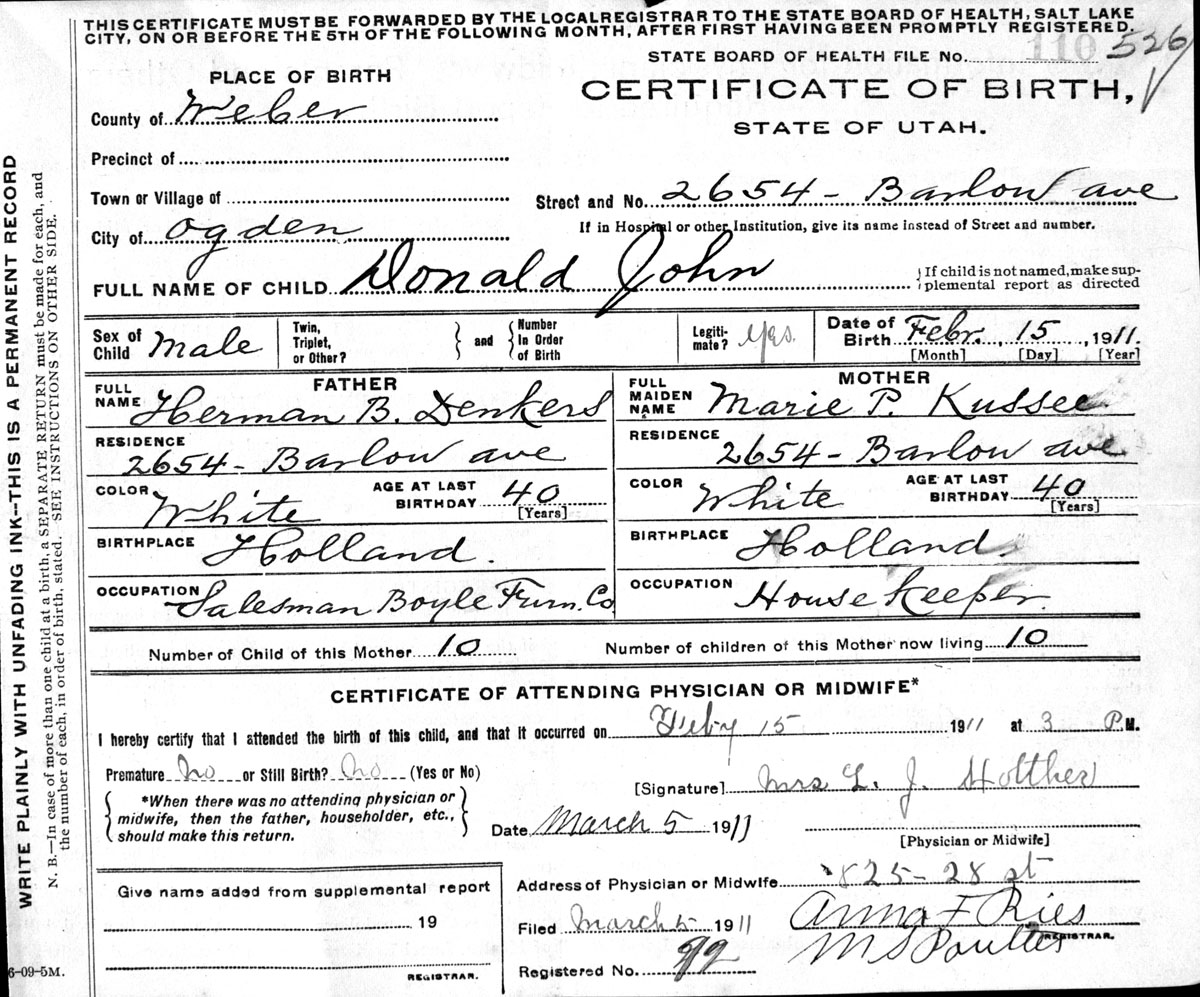 THIS CERTIFICATE MUST BE FORWARDED BY THE LOCAL REGISTRAR TO THE STATE BOARD OF HEALTH, SALT LAKE
CITY, ON OR BEFORE THE 5TH OF THE FOLLOWING MONTH, AFTER FIRST HAVING BEEN PROMPTLY REGISTERED.
STATE BOARD OF HEALTH FILE No. 110 526
PLACE OF BIRTH
CERTIFICATE OF BIRTH,
STATE OF UTAH.
County of Weber
Precinct of
Town or Village of
Street and No. 2654 - Barlow ave
City of Ogden
If in Hospital or other Institution, give its name instead of Street and number.
FULL NAME OF CHILD Donald John
{If child is not named, make sup-
plemental report as directed
Sex of Child Male
Twin, Triplet, or Other? } and { Number In Order of Birth
Legiti-mate? Yes.
Date of Birth Febr. 15, 1911.
[Month] [Day] [Year]
FATHER
FULL NAME Herman B. Denkers
RESIDENCE 2654 - Barlow ave
COLOR White AGE AT LAST BIRTHDAY 40 [Years]
BIRTHPLACE Holland.
OCCUPATION Salesman Boyle Furn. Co
MOTHER
FULL MAIDEN NAME Marie P. Kussee
RESIDENCE 2654 - Barlow ave
COLOR White AGE AT LAST BIRTHDAY 40 [Years]
BIRTHPLACE Holland.
OCCUPATION House Keeper.
Number of Child of this Mother 10 Number of children of this Mother now living 10
CERTIFICATE OF ATTENDING PHYSICIAN OR MIDWIFE*
I hereby certify that I attended the birth of this child, and that it occurred on Feby 15 1911 at 3 P.M.
Premature No or Still Birth? No (Yes or No)
[Signature] Mrs L. J. Holther
{ *When there was no attending physician or
midwife, then the father, householder, etc.,
should make this return. }
Date March 5 1911
[Physician or Midwife]
Give name added from supplemental report
19
REGISTRAR.
Address of Physician or Midwife 825 - 28 st
Filed March 5 1911 Anna F Ries
M S Poulter
REGISTRAR.
Registered No. 92
6-09-5M.
WRITE PLAINLY WITH UNFADING INK--THIS IS A PERMANENT RECORD
N. B.—In case of more than one child at a birth, a SEPARATE RETURN must be made for each, and
the number of each, in order of birth, stated. SEE INSTRUCTIONS ON OTHER SIDE.